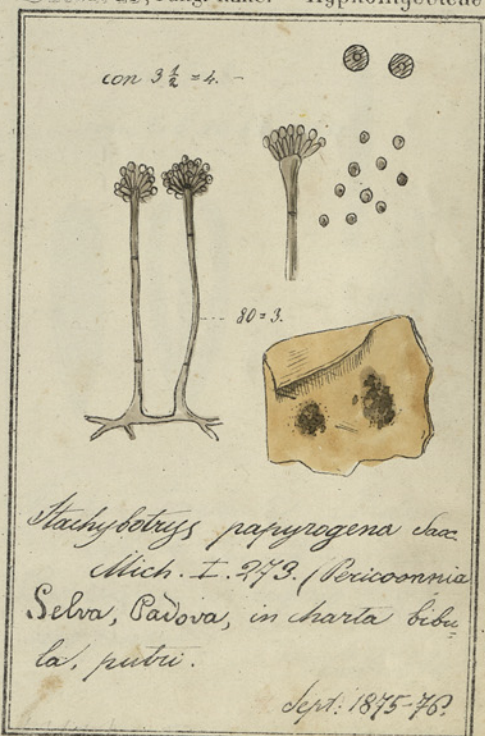 Hyphomyceteae
con 3 ½ = 4. -
80 = 3.
Stachybotrys papyrogena Sacc.
Mich. I. 273. (Pericoonnia
Selva, Padova, in charta bibu=
la, putri.
Sept: 1875-76.